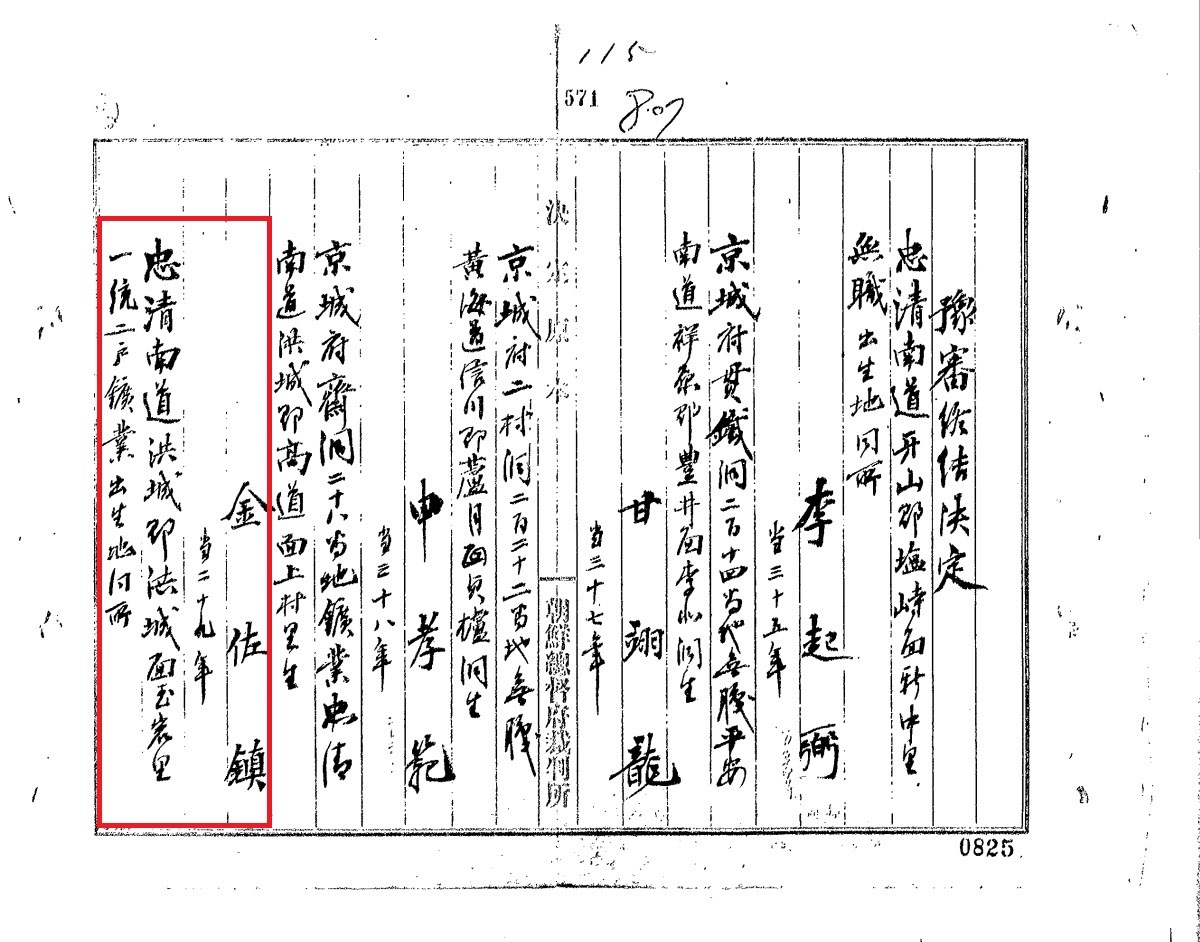 115
571
807
豫審終結決定
忠清南道牙山郡塩峙面新中里
無職 出生地同所
李起弼
当三十五年
京城府貫鐵洞二百十四番地無職平安
南道祥原郡豊井面李松洞生
甘翊龍
当三十七年
決定原本
朝鮮總督府裁判所
京城府二村洞二百二十二番地無職
黃海道信川郡蘆月面貞檯洞生
申孝範
当三十八年
京城府齋洞二十八番地鑛業忠清
南道洪城郡高道面上村里生
金佐鎮
当二十九年
忠清南道洪城郡洪城面玉岩里
一統二戸鑛業出生地同所
0825